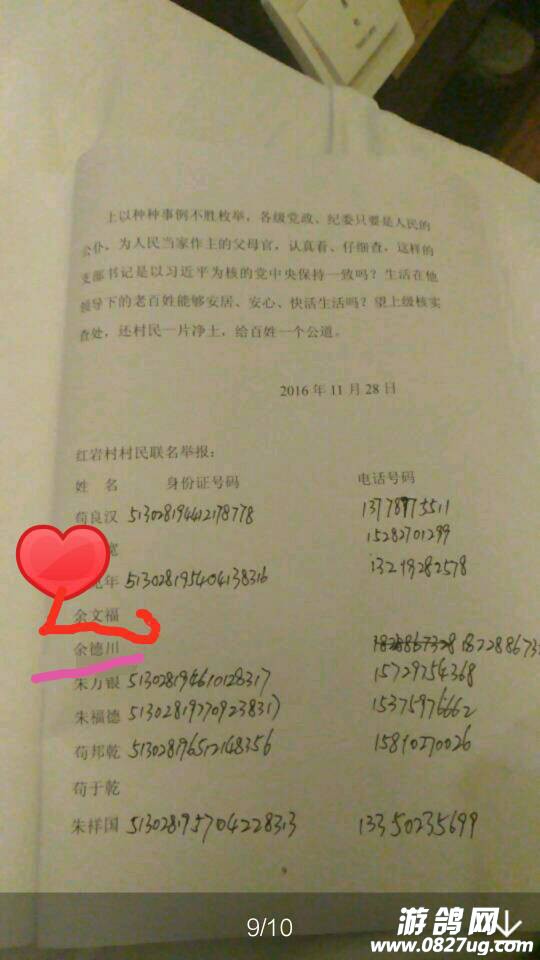 上以种种事例不胜枚举，各级党政、纪委只要是人民的
公仆，为人民当家作主的父母官，认真看、仔细查，这样的
支部书记是以习近平为核的党中央保持一致吗？生活在他
领导下的老百姓能够安居、安心、快活生活吗？望上级核实
查处，还村民一片净土，给百姓一个公道。
2016 年 11 月 28 日
红岩村村民联名举报：
姓 名 身份证号码 电话号码
苟良汉 513028194412178778 13778975511
宽 15282701299
年 513028195404138316 13219282578
余文福
余德川
朱万银 513028194610128317 15729754368
朱福德 513028197709238317 15375976662
苟邦乾 513028196512148356 15810270026
苟于乾
朱祥国 513028195704228313 13350235699
9
9/10
游鸽网
www.0827ug.com